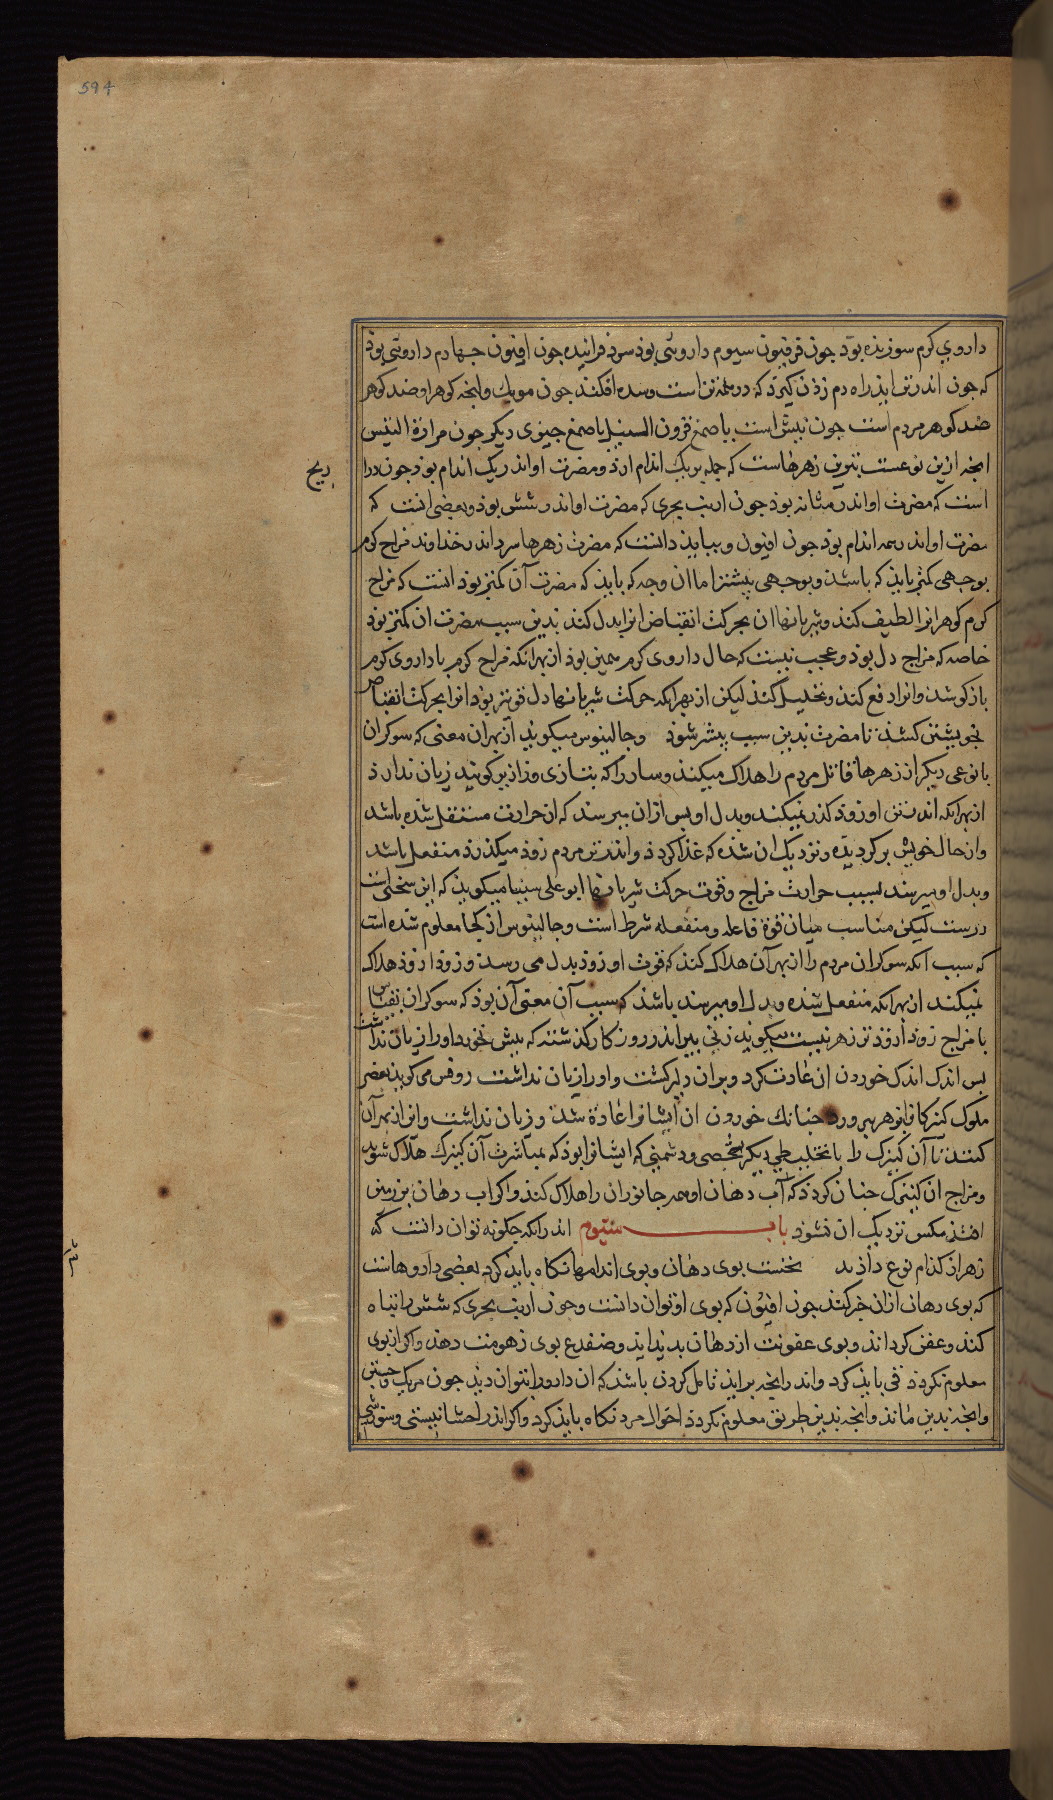 594
داروي کرم سوزنده بوذ جون فرفیون سیوم داروئی بوذ سرد فراینده جون افیون جهارم داروئی بوذ
که جون اندر تن ایذ راه دم زذن کیرد که در همه تن است وسده افکند جون مویک وانجه کوهر او ضد کوهر
ضد کوهر مردم است جون بیش است یا صمغ قرون السنبل یا صمغ جیزی دیکر جون مرارة النیس
انجه ازین نوعست بترین زهرهاست که جمله بر یک اندام ارذ ومضرت او اندر یک اندام بوذ جون درا
ریح
است که مضرت او اندر مثانه بوذ جون ارنب بحری که مضرت او اندر شش بوذ وبعضی انست که
مضرت او اندر همه اندام بوذ جون افیون وببایذ دانست که مضرت زهرها سرد اندر خذاوند مزاج کرم
بوجهی کمتر بایذ که باشذ وبوجهی بیشتر اما ان وجه که بایذ که مضرت آن کمتر بوذ انست که مزاج
کرم کوهر انرا لطیف کند وشریانها ان بحرکت انقباض انرا بدل کند بدین سبب مضرت ان کمتر بوذ
خاصه که مزاج دل بوذ وعجب نیست که حال داروی کرم همین بوذ از بهر انکه مزاج کرم با داروی کرم
باز کوشذ وانرا دفع کند وتحلیل کند لیکن از بهر انکه حرکت شریانها دل قویتر بوذ وانرا بحرکت انقباض
بخویشتن کشذ تا مضرت بدین سبب بیشتر شوذ وجالینوس میکویذ از بهر ان معنی که سوکران
با نوعی دیکر از زهرها قاتل مردم را هلاک میکند وسار را که بتازی وزازیر کویند زیان ندارذ
از بهر انکه اندر تن او زوذ کذر نمیکند وبدل او بس ازان میرسد که از حرارت مستقل شذه باشد
واز حال خویش برکردیده ونزدیک ان شذه که غذا کردذ واندر تن مردم زوذ میکذرذ منفعل باشد
وبدل او میرسد بسبب حرارت مزاج وقوت حرکت شریانها ابو علی سینا میکویذ که این سخنی است
درست لیکن مناسب میان قوة فاعله ومنفعله شرط است وجالینوس از کجا معلوم شده است
که سبب انکه سوکران مردم را از بهر آن هلاک کند که قوت او زوذ بدل می رسد وزوذ ازوذ هلاک
نمیکند از بهر انکه منفعل شده وبدل او میرسد باشذ که سبب آن معنی آن بوذ که سوکران بقیاس
با مزاج زوذ ازوذ تر زهر نیست میکویند زنی بیر اندر روزکار کذشته که بیش خورد اورا زیان نداشت
بس اندک اندک خوردن ان عادت کرد وبران دلیر کشت واورا زیان نداشت روفس می کویذ بعضی
ملوک کنیزکان بزهر برورد جنانک خوردن ان ایشانرا عادة شد وزیان نداشت وانرا از بهر آن
کنند تا آن کنیزک را با تحفه طی دیکر بخصمی ودشمنی که ایشانرا بوذ که بمباشرت آن کنیزک هلاک شود
ومزاج ان کنیزک جنان کردذ که آب دهان او همه جانوران را هلاک کند واکر اب دهان بر زمین
افتد مکس نزدیک ان نشوذ باب سیوم اندر انکه جکونه توان دانست که
زهر از کذام نوع داذند نخست بوی دهان وبوی اندامها نکاه بایذ کرد بعضی داروهاست
که بوی دهان ازان خبر کند جون افیون که بوی او توان دانست وجون ارنب بحری که شش را تباه
کند وعفن کرداند وبوی عفونت از دهان بدید اید وضفدع بوی زهومت دهد واکر از بوی
معلوم نکردذ قی بایذ کرد واندر انجه براید تامل کردن باشذ که ان دارو را بتوان دید جون مریک وجبن
وانجه بدین ماند وانجه بدین طریق معلوم نکردذ احوال مرد نکاه بایذ کرد واکر اندر احشا نیستی وسوزشی